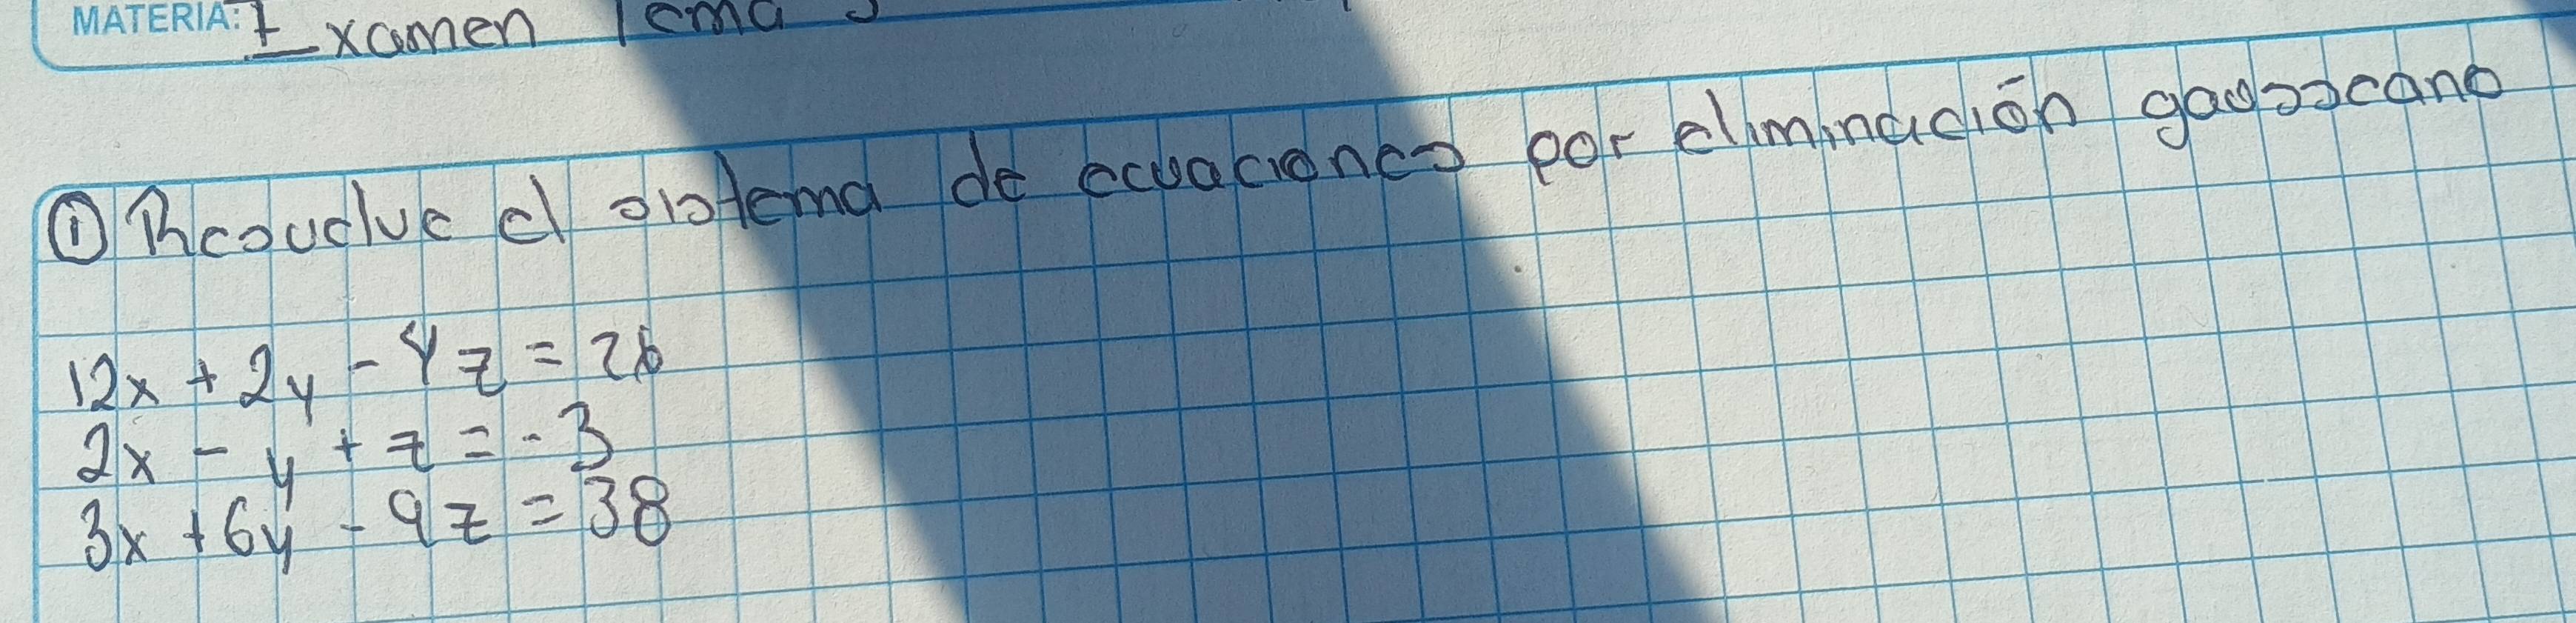 MATERIA: Examen Tema 3
① Resuelve el sistema de ecuaciones por eliminación gausseano
12x + 2y - 4z = 26
2x - y + z = -3
3x + 6y - 9z = 38